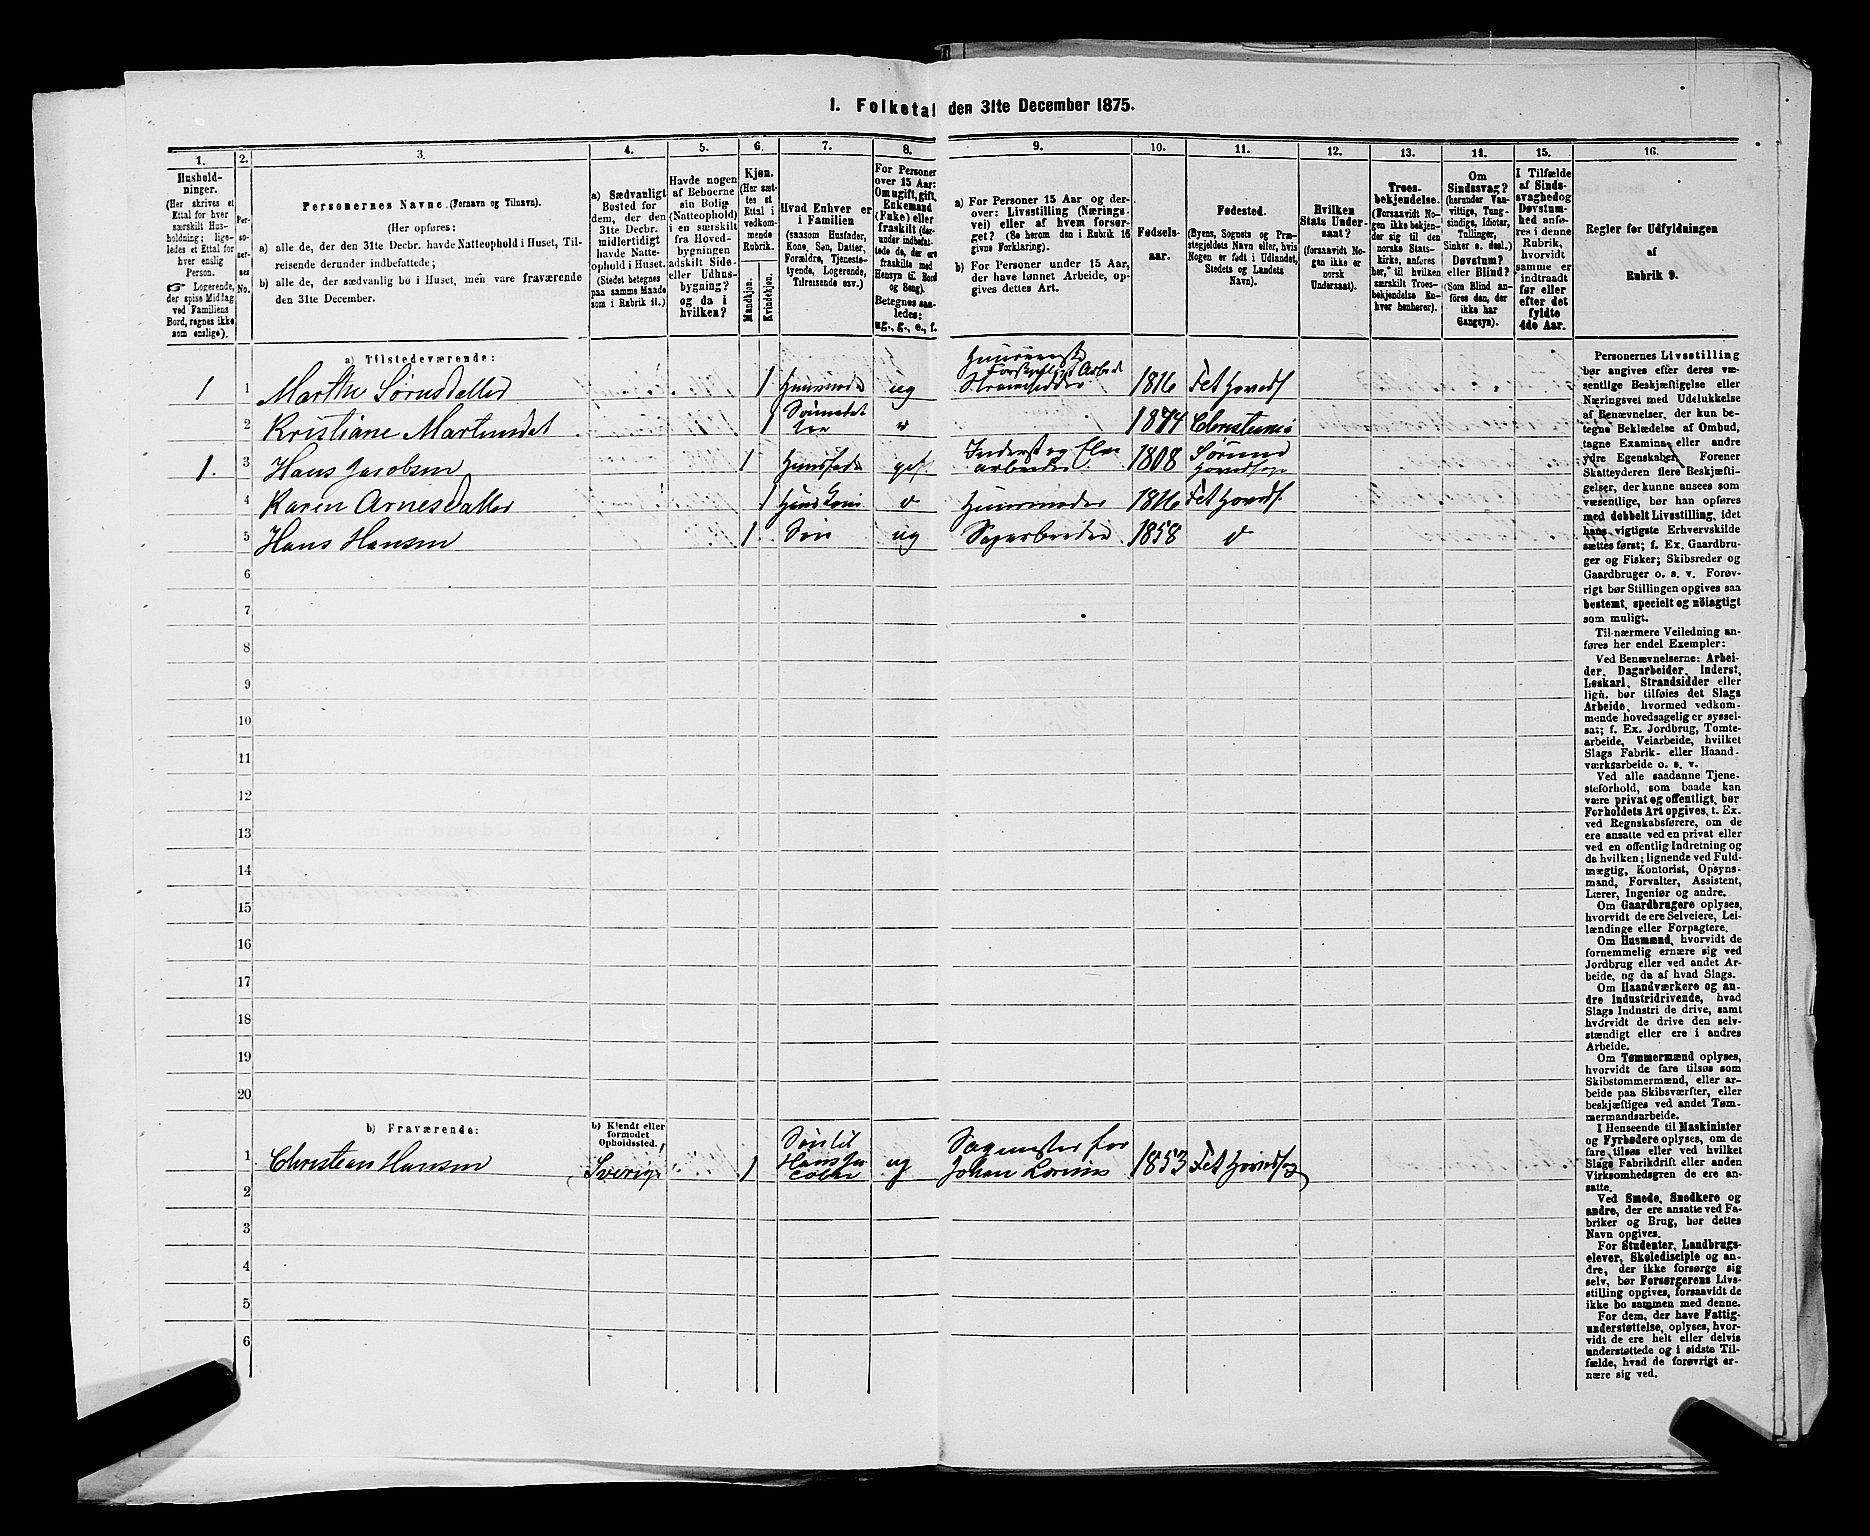 1. Folketal den 31te December 1875.
1. 2. 3. 4. 5. 6. 7. 8. 9. 10. 11. 12. 13. 14. 15. 16.
Hushold-
ninger.
(Her skrives et
Ettal for hver
særskilt Hus-
holdning; lige-
ledes et Ettal for
hver enslig
Person.
☞ Logerende,
der spise Middag
ved Familiens
Bord, regnes ikke
som enslige).
Per-
so-
ner-
nes
No.
Personernes Navne. (Fornavn og Tilnavn).
(Her opføres:
a) alle de, der den 31te Decbr. havde Natteophold i Huset, Til-
reisende derunder indbefattede;
b) alle de, der sædvanlig bo i Huset, men vare fraværende
den 31te December.
a) Sædvanligt
Bosted for
dem, der den
31te Decbr.
midlertidigt
havde Natte-
ophold i Huset.
(Stedet betegnes
paa samme Maade
som i Rubrik 11.)
Havde nogen
af Beboerne
sin Bolig
(Natteophold)
i en særskilt
fra Hoved-
bygningen
adskilt Side-
eller Udhus-
bygning?
og da i
hvilken?
Kjøn.
(Her sæt-
tes et
Ettal i
vedkom-
mende
Rubrik.
Mandkjøn.
Kvindekjøn.
Hvad Enhver er
i Familien
(saasom Husfader,
Kone, Søn, Datter,
Forældre, Tjeneste-
tyende, Logerende,
Tilreisende osv.)
For Personer
over 15 Aar:
Om ugift, gift,
Enkemand
(Enke) eller
fraskilt (der-
under indbefat-
tede de, der ere
fraskilte med
Hensyn til Bord
og Seng).
Betegnes saa-
ledes:
ug., g., e., f.
a) For Personer 15 Aar og der-
over: Livsstilling (Nærings-
vei) eller af hvem forsør-
get? (Se herom den i Rubrik 16
givne Forklaring).
b) For Personer under 15 Aar,
der have lønnet Arbeide, op-
gives dettes Art.
Fødsels-
aar.
Fødested.
(Byens, Sognets og Præ-
stegjeldets Navn eller, hvis
Nogen er født i Udlandet,
Stedets og Landets
Navn).
Hvilken
Stats Under-
saat?
(forsaavidt No-
gen ikke er
norsk
Undersaat).
Troes-
bekjendelse.
(Forsaavidt No-
gen ikke bekjen-
der sig til den
norske Stats-
kirke, anføres
her, til hvilken
særskilt Troes-
bekjendelse En-
hver henhører).
Om
Sindssvag?
(herunder Van-
vittige, Tung-
sindige, Idioter,
Tullinger,
Sinker o. desl.).
Døvstum?
eller Blind?
(Som Blind an-
føres den, der
ikke har
Gangsyn).
I Tilfælde
af Sinds-
svaghed og
Døvstum-
hed anfø-
res i denne
Rubrik,
hvorvidt
samme er
indtraadt
før eller
efter det
fyldte
4de Aar.
Regler for Udfyldningen
af
Rubrik 9.
a) Tilstedeværende:
1 1 Marthe Sørnsdatter 1 Huusmoder ug Strandsidder 1816 Fet Hoveds
2 Kristiane 1 1874 Christiania
1. 3 Hans Jacobsen 1 Huusfader gift Inderst og Elve arbeider 1808 Sørum Hovedsogn
4 Karen Arnesdatter 1 Huus Kone d Huusmoder 1816 Fet Hovds.
5 Hans Hansen 1 Søn ug Sagarbeider 1858 d
6
7
8
9
10
11
12
13
14
15
16
17
18
19
20
b) Fraværende:
b) Kjendt eller
formodet
Opholdssted.
1 Christian Hansen Sverige 1 Søn til Hans Jacobsen ug Sagmester for Johan 1853 Fet Hovedsog
2
3
4
5
6
Personernes Livsstilling
bør angives efter deres væ-
sentlige Beskjæftigelse eller
Næringsvei med Udelukkelse
af Benævnelser, der kun be-
tegne Beklædelse af Ombud,
tagne Examina eller andre
ydre Egenskaber. Forener
Skatteyderen flere Beskjæfti-
gelser, der kunne ansees som
væsentlige, bør han opføres
med dobbelt Livsstilling, idet
hans vigtigste Erhvervskilde
sættes først; f. Ex. Gaardbru-
ger og Fisker; Skibsreder og
Gaardbruger o. s. v. Forøv-
rigt bør Stillingen opgives saa
bestemt, specielt og nöiagtigt
som muligt.
Til nærmere Veiledning an-
føres her endel Exempler:
Ved Benævnelserne: Arbei-
der, Dagarbeider, Inderst,
Løskarl, Strandsidder eller
lign. bør tilføies det Slags
Arbeide, hvormed vedkom-
mende hovedsagelig er syssel-
sat; f. Ex. Jordbrug, Tomte-
arbeide, Veiarbeide, hvilket
Slags Fabrik- eller Haand-
værksarbeide o. s. v.
Ved alle saadanne Tjene-
steforhold, som baade kan
være privat og offentligt, bør
Forholdets Art opgives, t. Ex.
ved Regnskabsførere, om de
ere ansatte ved en privat eller
ved en offentlig Indretning og
da hvilken; lignende ved Fuld-
mægtig, Kontorist, Opsyns-
mand, Forvalter, Assistent,
Lærer, Ingeniør og andre.
Om Gaardbrugere oplyses,
hvorvidt de ere Selveiere, Lei-
lændinge eller Forpagtere.
Om Husmænd, hvorvidt de
fornemmelig ernære sig ved
Jordbrug eller ved andet Ar-
beide, og da af hvad Slags.
Om Haandværkere og an-
dre Industridrivende, hvad
Slags Industri de drive, samt
hvorvidt de drive den selv-
stændigt eller ere i andres
Arbeide.
Om Tømmermænd oplyses,
hvorvidt de fare tilsøs som
Skibstømmermænd, eller ar-
beide paa Skibsværfter, eller
beskjæftiges ved andet Tøm-
mermandsarbeide.
I Henseende til Maskinister
og Fyrbødere oplyses, om de
fare tilsøs eller ved hvilket
Slags Fabrikdrift eller anden
Virksomhedsgren de ere an-
satte.
Ved Smede, Snedkere og
andre, der ere ansatte ved Fa-
briker og Brug, bør dettes
Navn opgives.
For Studenter, Landbrugs-
elever, Skoledisciple og an-
dre, der ikke forsørge sig
selv, bør Forsørgerens Livs-
stilling opgives, forsaavidt de
ikke bo sammen med denne.
For dem, der have Fattig-
understøttelse, oplyses, hvor-
vidt de ere helt eller delvis
understøttede og i sidste Til-
fælde, hvad de forøvrigt er-
nære sig ved.